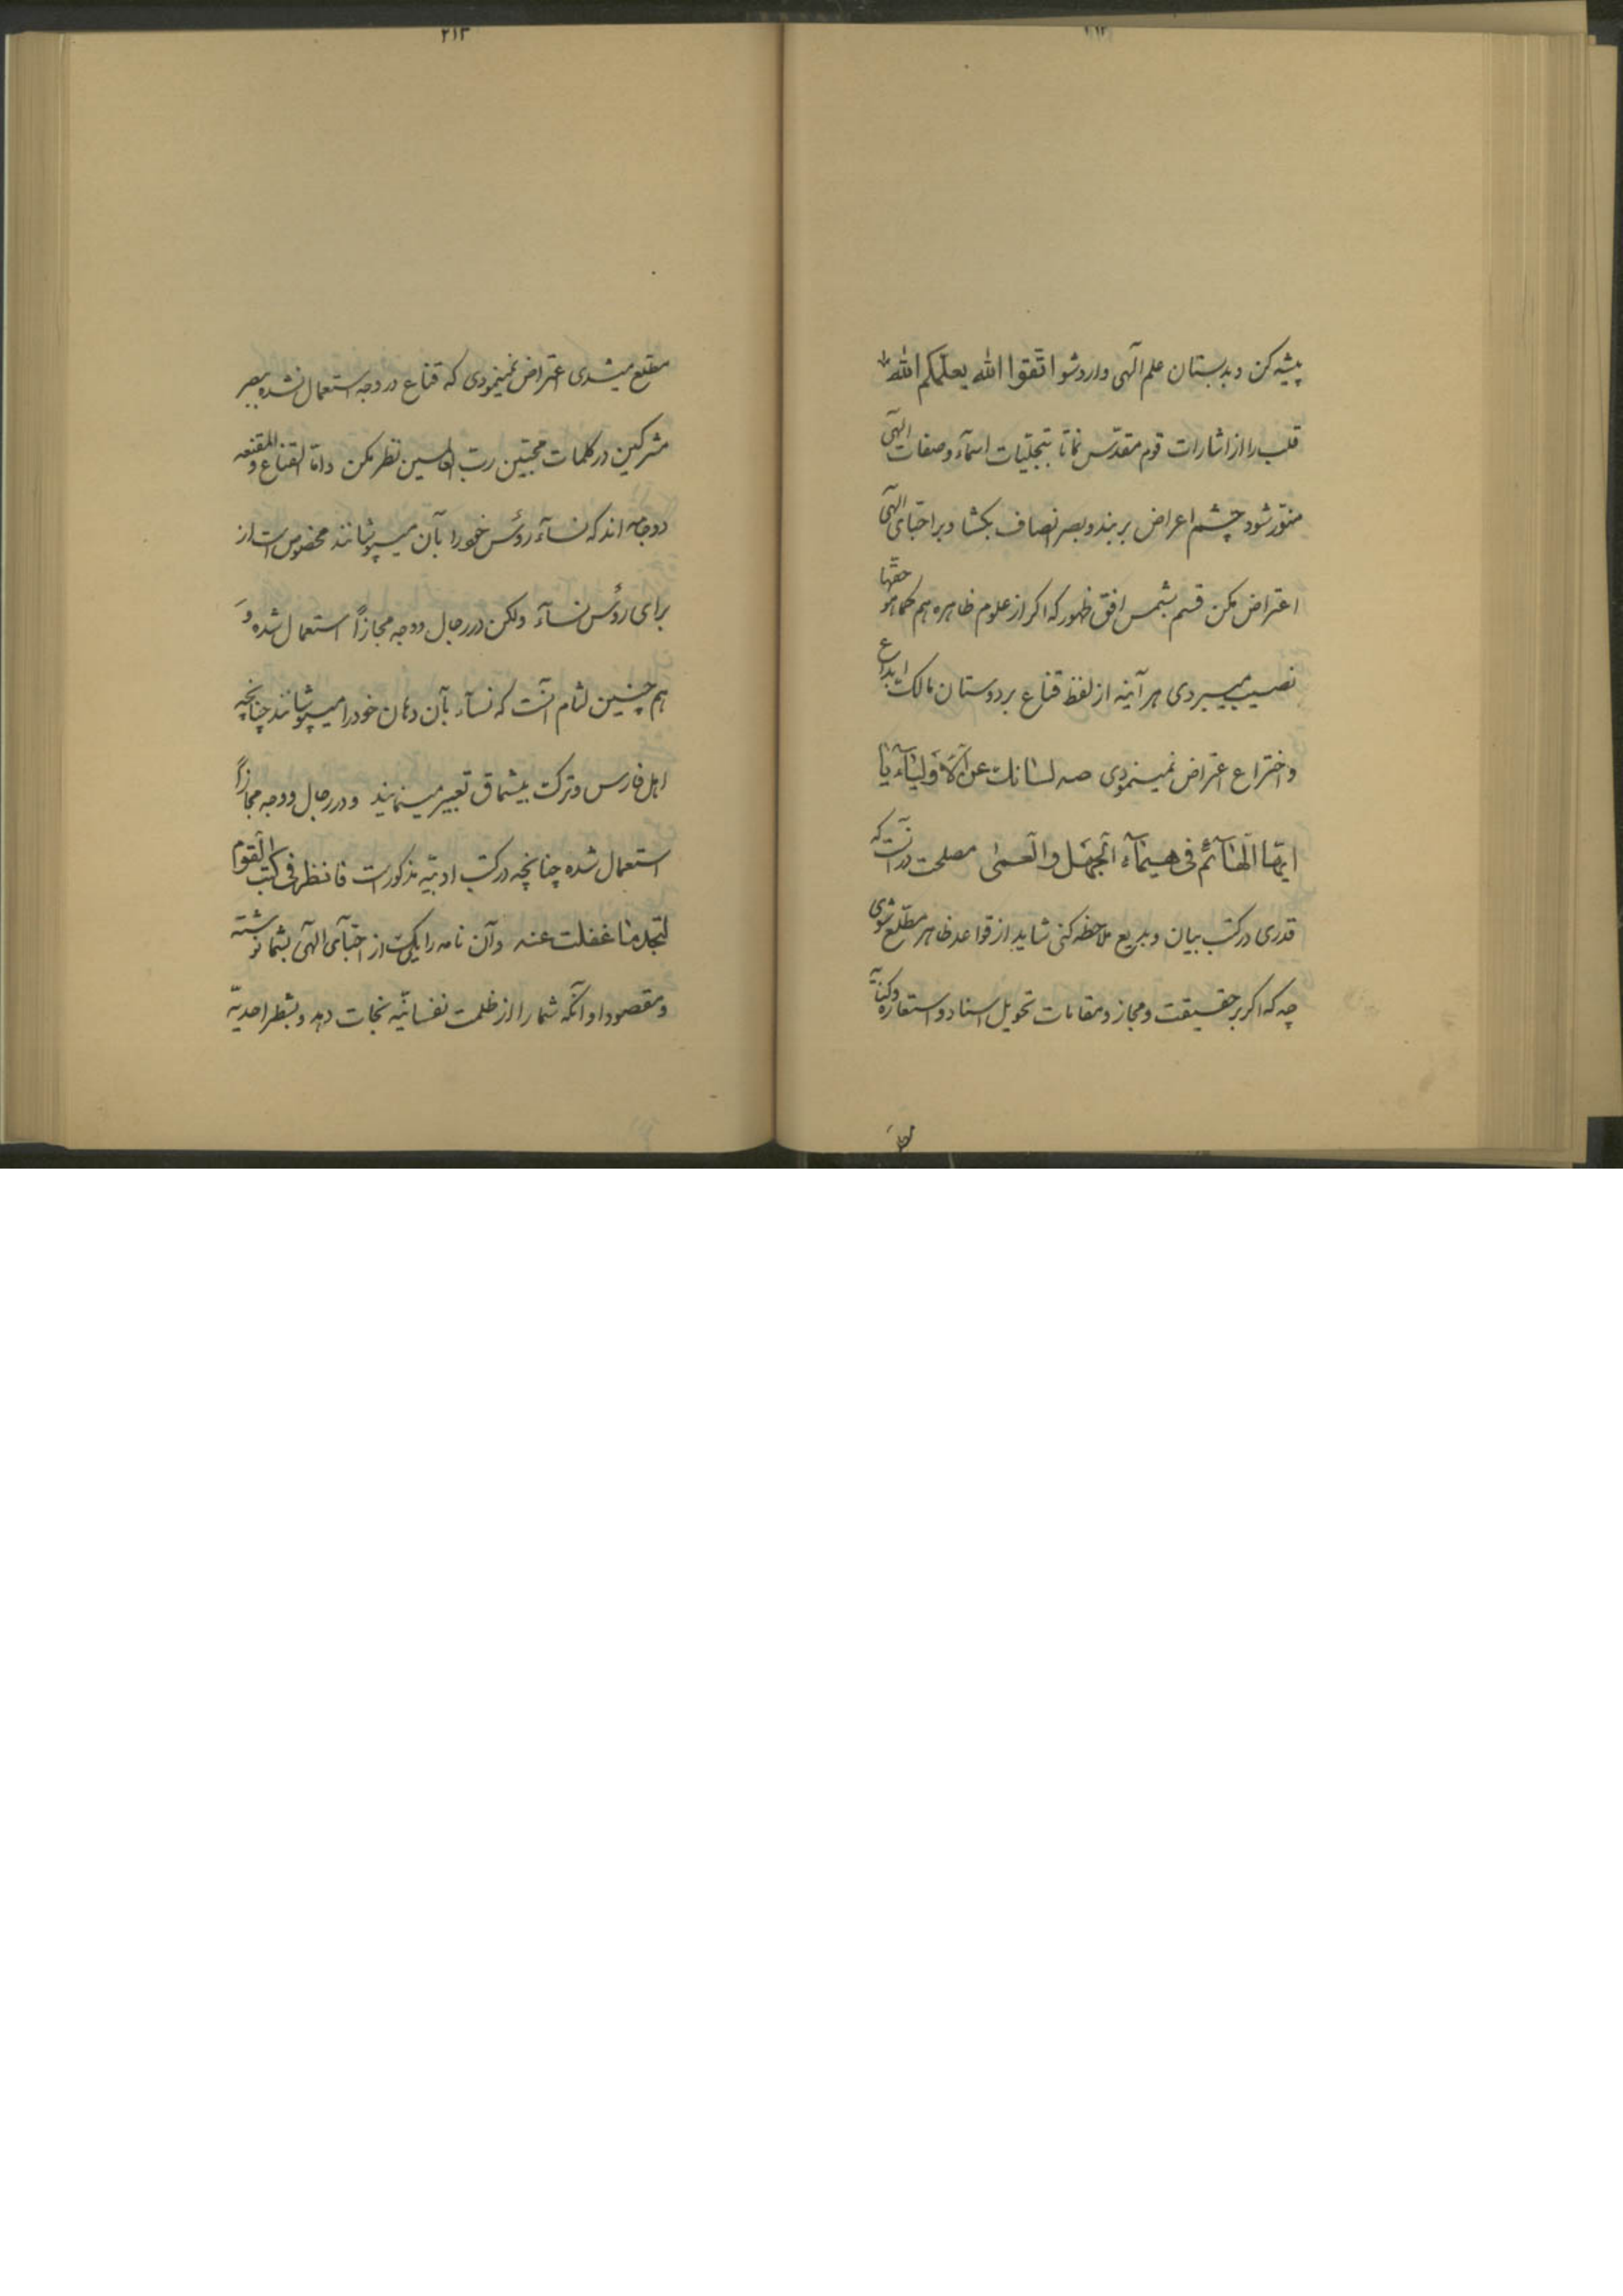 ۲۱۲
پیشه کن و بدبستان علم الهی وارد شو اتّقوا الله یعلّمکم الله
قلب را از اشارات قوم مقدّس نما تا بتجلّیات اسمآء و صفات الهی
منوّر شود چشم اعراض بربند و بصر انصاف بگشا و بر احبّای الهی
اعتراض مکن قسم بشمس افق ظهور که اگر از علوم ظاهره هم کما هو حقّها
نصیب میبردی هر آینه از لفظ قناع بر دوستان مالک ابداع
و اختراع اعتراض نمینمودی صه لسانک عن الاولیآء یا
ایّها الهآئم فی هیمآء الجهل و العمی مصلحت در آنست که
قدری در کتب بیان و بدیع ملاحظه کنی شاید از قواعد ظاهر مطّلع شوی
چه که اگر بر حقیقت و مجاز و مقامات تحویل اسناد و استعاره و کنایه
۲۱۳
مطّلع میشدی اعتراض نمینمودی که قناع در وجه استعمال نشده ببصر
مشرکین در کلمات محبّین ربّ العالمین نظر مکن و امّا القناع و المقنعه
دو جامه اند که نسآء رؤس خود را بآن میپوشانند مخصوص است از
برای رؤس نسآء ولکن در رجال و وجه مجازاً استعمال شده و
هم چنین لثام آنست که نسآء بآن دهان خود را میپوشانند چنانچه
اهل فارس و ترک بیشماق تعبیر مینمایند و در رجال و وجه مجازاً
استعمال شده چنانچه در کتب ادبیّه مذکور است فانظر فی کتب القوم
لتجد ما غفلت عنه و آن نامه را یکی از احبّآی الهی بشما نوشته
و مقصود او آنکه شما را از ظلمت نفسانیّه نجات دهد و بشطر احدیّه